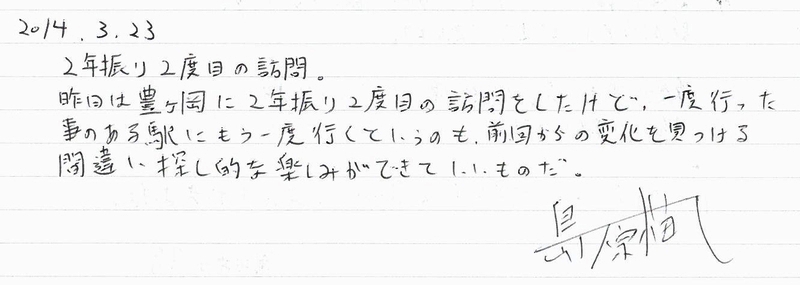 2014.3.23
2年振り2度目の訪問。
昨日は豊ヶ岡に2年振り2度目の訪問をしたけど、一度行った
事のある駅にもう一度行くというのも、前回からの変化を見つける
間違い探し的な楽しみができていいものだ。